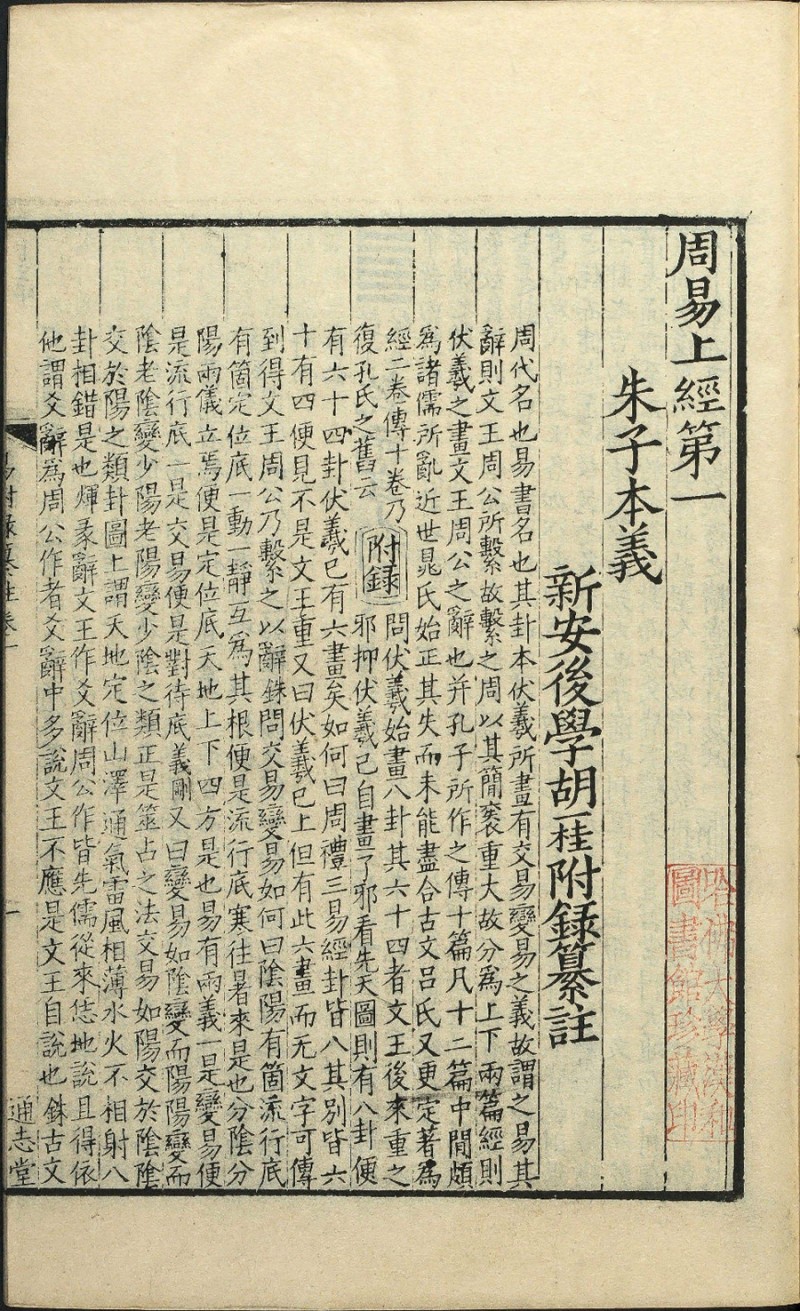 周易上經第一
朱子本義
新安後學胡一桂附錄纂註
周代名也易書名也其卦本伏羲所畫有交易變易之義故謂之易其
辭則文王周公所繫故繫之周以其簡袠重大故分爲上下兩篇經則
伏羲之畫文王周公之辭也并孔子所作之傳十篇凡十二篇中閒頗
爲諸儒所亂近世晁氏始正其失而未能盡合古文呂氏又更定著爲
經二卷傳十卷乃
復孔氏之舊云
附錄
問伏羲始畫八卦其六十四者文王後來重之
邪抑伏羲已自畫了邪看先天圖則有八卦便
有六十四卦伏羲已有六畫矣如何曰周禮三易經卦皆八其別皆六
十有四便見不是文王重又曰伏羲已上但有此六畫而无文字可傳
到得文王周公乃繫之以辭銖問交易變易如何曰陰陽有箇流行底
有箇定位底一動一靜互爲其根便是流行底寒往暑來是也分陰分
陽兩儀立焉便是定位底天地上下四方是也易有兩義一是變易便
是流行底一是交易便是對待底義剛又曰變易如陰變而陽陽變而
陰老陰變少陽老陽變少陰之類正是筮占之法交易如陽交於陰陰
交於陽之類卦圖上謂天地定位山澤通氣雷風相薄水火不相射八
卦相錯是也煇彖辭文王作爻辭周公作皆先儒從來恁地說且得依
他謂爻辭爲周公作者爻辭中多說文王不應是文王自說也銖古文
易附錄纂註卷一
一
通志堂
哈佛大學漢和
圖書館珍藏印